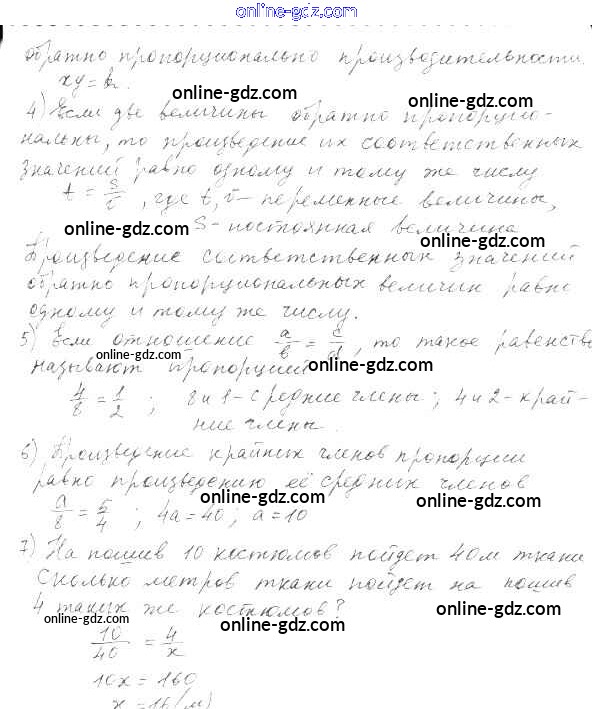 online-gdz.com
обратно пропорционально производительности.
xy=k.
online-gdz.com
4) Если две величины обратно пропорцио-
нальны, то произведение их соответственных
значений равно одному и тому же числу
t = s/v, где t, v - переменные величины,
online-gdz.com online-gdz.com
S - постоянная величина
online-gdz.com
Произведение соответственных значений
обратно пропорциональных величин равно
одному и тому же числу.
5) Если отношение a/b = c/d, то такое равенство
online-gdz.com
называют пропорцией
online-gdz.com
4/8 = 1/2 ; 8 и 1 - средние члены; 4 и 2 - край-
ние члены.
6) Произведение крайних членов пропорции
равно произведению её средних членов
online-gdz.com online-gdz.com
a/8 = 5/4 ; 4a=40; a=10
7) На пошив 10 костюмов пойдет 40м ткани
Сколько метров ткани пойдет на пошив
4 таких же костюмов?
online-gdz.com online-gdz.com online-gdz.com
10/40 = 4/x
10x = 160
x = 16 (м)